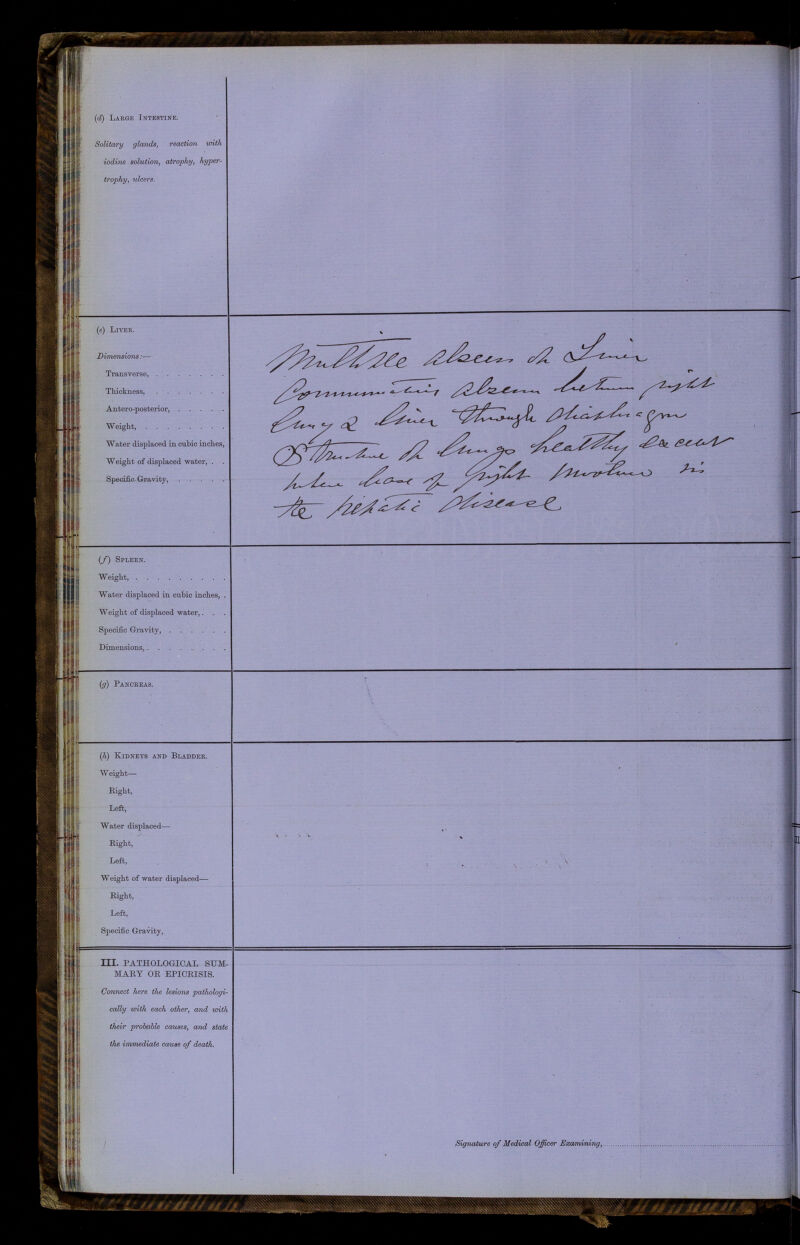 (d) LARGE INTESTINE.
Solitary glands, reaction with
iodine solution, atrophy, hyper-
trophy, ulcers.
(e) LIVER.
Dimensions:—
Transverse, . . . . . . .
Thickness, . . . . . . .
Antero-posterior, . . . . .
Weight, . . . . . . . .
Water displaced in cubic inches,
Weight of displaced water, . .
Specific Gravity, . . . . .
Multiple abscess of Liver
Communicating abscess between right
lung & liver through diaphragm
Structure of lungs healthy except
where base of right involved in
the hepatic disease
(f) SPLEEN.
Weight, . . . . . . . . .
Water displaced in cubic inches, .
Weight of displaced water, . . .
Specific Gravity, . . . . . .
Dimensions, . . . . . . . .
(g) PANCREAS.
(h) KIDNEYS AND BLADDER.
Weight—
Right,
Left,
Water displaced—
Right,
Left,
Weight of water displaced—
Right,
Left,
Specific Gravity,
III. PATHOLOGICAL SUM-
MARY OR EPICRISIS.
Connect here the lesions pathologi-
cally with each other, and with
their probable causes, and state
the immediate cause of death.
Signature of Medical Officer Examining,